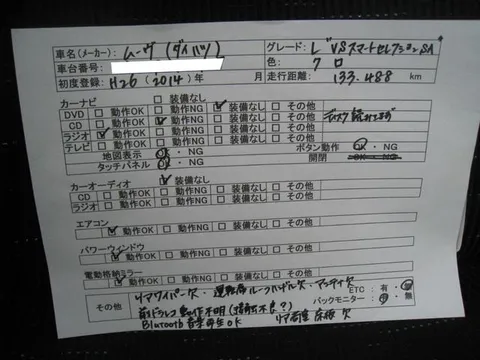 車名(メーカー): ムーヴ (ダイハツ) グレード: L "VSスマートセレクションSA
車台番号: 色: クロ
初度登録: H26 (2014) 年 月 走行距離: 133.488 km
カーナビ □ 装備なし
DVD □ 動作OK □ 動作NG ☑ 装備なし □ その他
CD □ 動作OK ☑ 動作NG □ 装備なし □ その他 ディスク
ラジオ ☑ 動作OK □ 動作NG □ 装備なし □ その他
テレビ □ 動作OK □ 動作NG □ 装備なし □ その他
地図表示 OK ・ NG ボタン動作 OK ・ NG
タッチパネル OK ・ NG 開閉 OK ・ NG
カーオーディオ ☑ 装備なし
CD □ 動作OK □ 動作NG □ 装備なし □ その他
ラジオ □ 動作OK □ 動作NG □ 装備なし □ その他
エアコン
☑ 動作OK □ 動作NG □ 装備なし □ その他
パワーウィンドウ
☑ 動作OK □ 動作NG □ 装備なし □ その他
電動格納ミラー
☑ 動作OK □ 動作NG □ 装備なし □ その他
その他 リアワイパー欠・運転席ルーフハザル欠・アンテナ欠 ETC: 有 ・ 無
前ドラレコ動作不明(接触不良?) バックモニター: 有 ・ 無
Blutooth音楽再生OK リア荷室 床板 欠